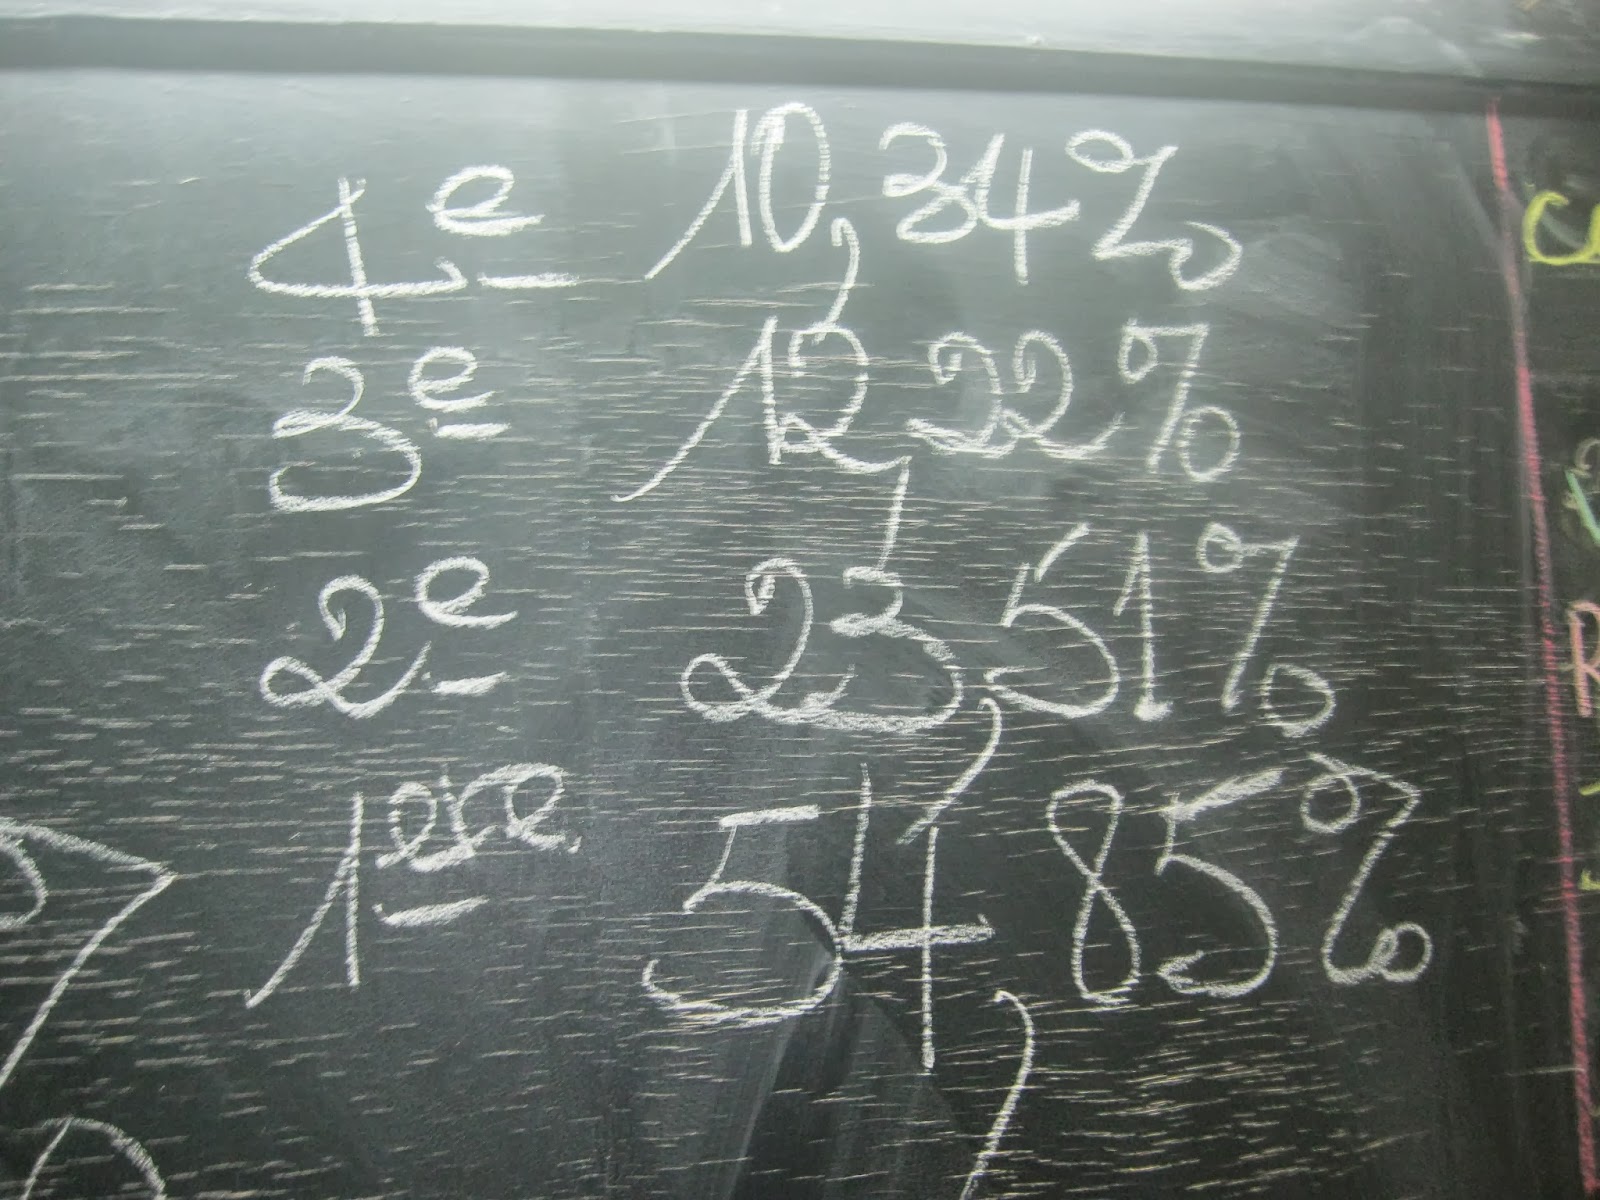 4e 10,34%
3e 12,22%
2e 23,51%
1ere 54,85%